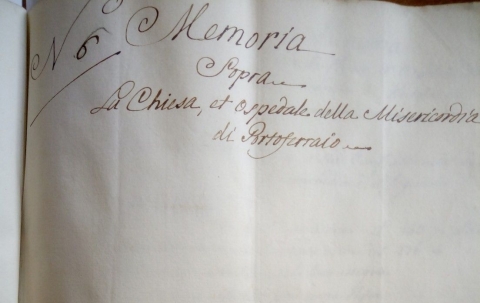 N 6 Memoria
Sopra
La Chiesa, et ospedale della Misericordia
di Portoferraio